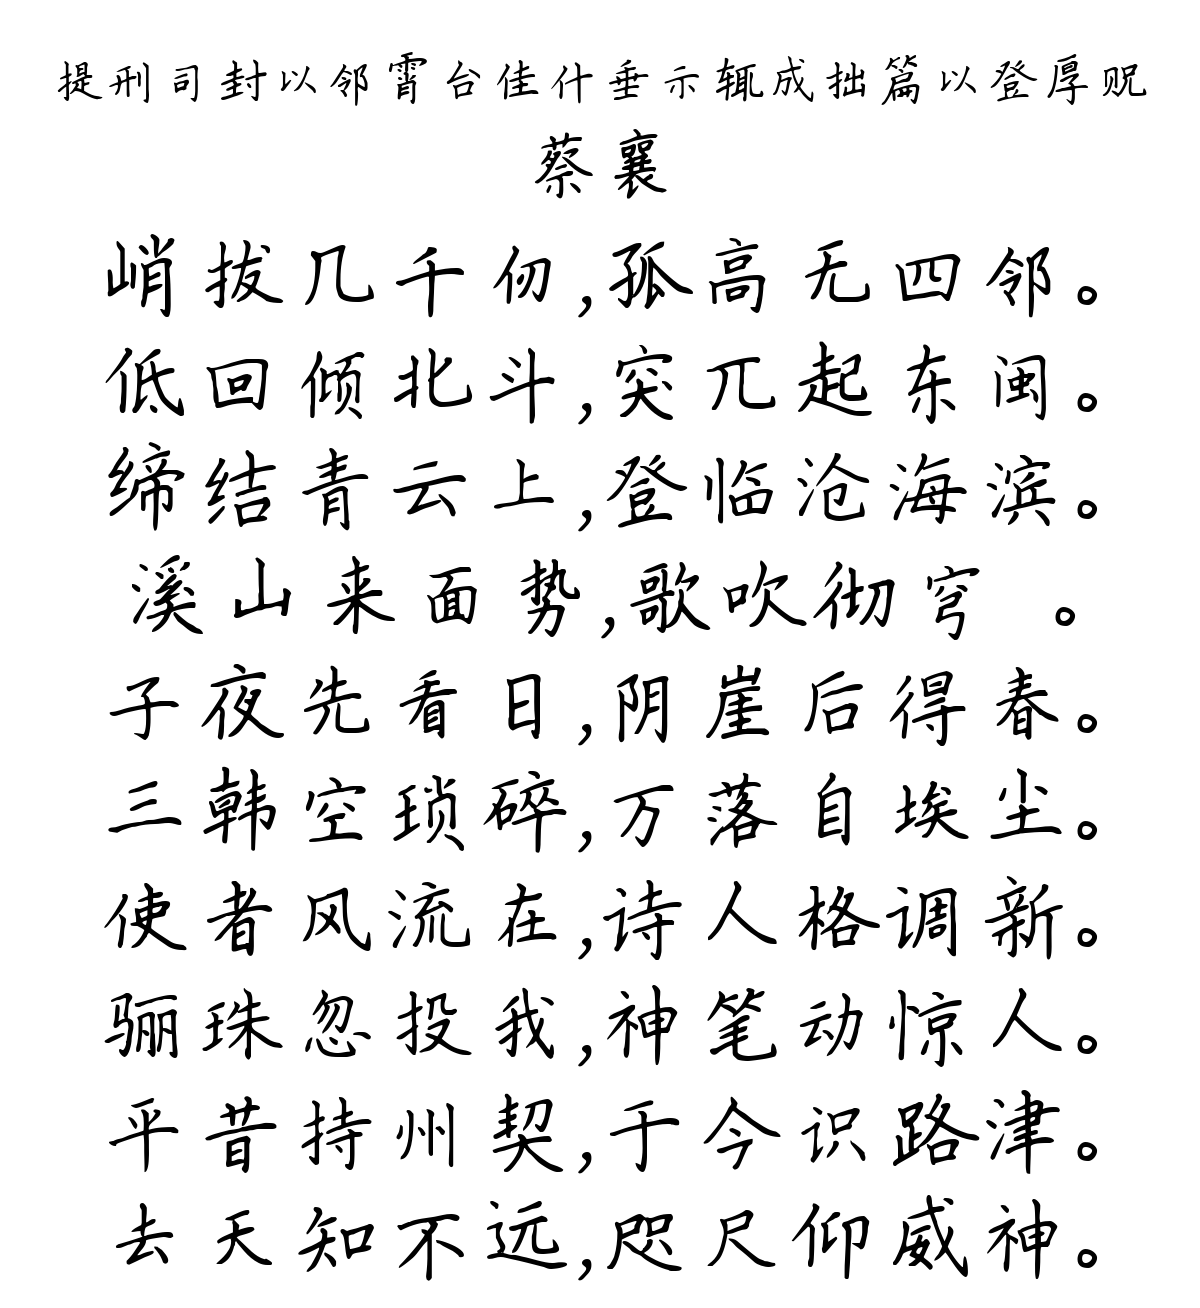 提刑司封以邻霄台佳什垂示辄成拙篇以登厚贶
蔡襄
峭拔几千仞,孤高无四邻。
低回倾北斗,突兀起东闽。
缔结青云上,登临沧海滨。
溪山来面势,歌吹彻穹 。
子夜先看日,阴崖后得春。
三韩空琐碎,万落自埃尘。
使者风流在,诗人格调新。
骊珠忽投我,神笔动惊人。
平昔持州契,于今识路津。
去天知不远,咫尺仰威神。